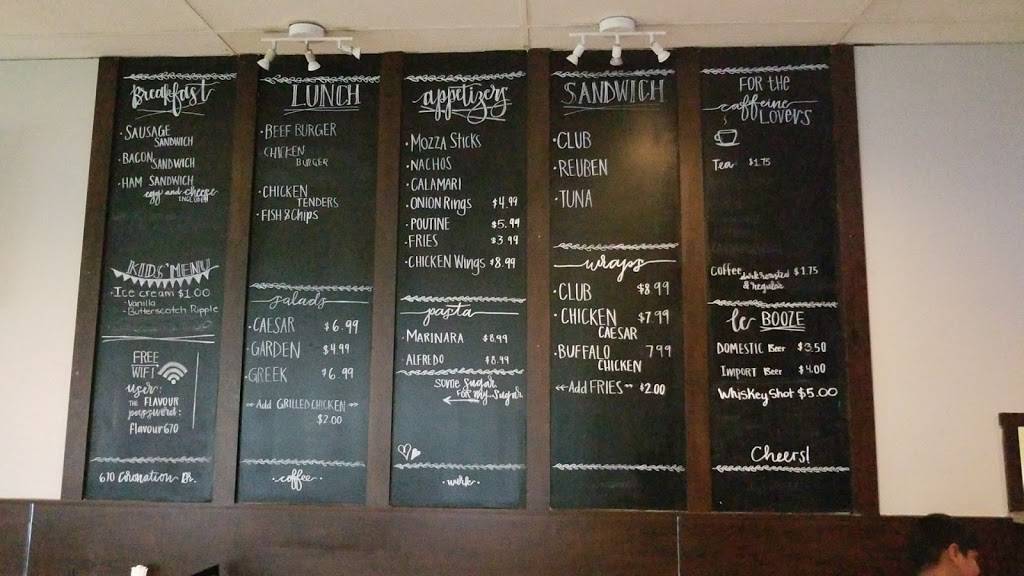 Breakfast
• SAUSAGE
SANDWICH
• BACON
SANDWICH
• HAM SANDWICH
egg and cheese
INCLUDED
KIDS' MENU
• Ice cream $1.00
- Vanilla
- Butterscotch Ripple
FREE
WIFI
user:
THE FLAVOUR
password:
Flavour670
670 Coronation Dr.
LUNCH
• BEEF BURGER
CHICKEN
BURGER
• CHICKEN
TENDERS
• FISH & Chips
salads
• CAESAR $6.99
• GARDEN $4.99
• GREEK $6.99
Add GRILLED CHICKEN
$2.00
• coffee •
appetizers
• MOZZA STICKS
• NACHOS
• CALAMARI
• ONION Rings $4.99
• POUTINE $5.99
• FRIES $3.99
• CHICKEN Wings $8.99
pasta
• MARINARA $8.99
• ALFREDO $8.99
some sugar
FOR my sugar
SANDWICH
• CLUB
• REUBEN
• TUNA
wraps
• CLUB $8.99
• CHICKEN $7.99
CAESAR
• BUFFALO 7.99
CHICKEN
Add FRIES $2.00
FOR the
caffeine
LOVERS
Tea $1.75
Coffee dark roasted $1.75
& regular
le BOOZE
DOMESTIC Beer $3.50
IMPORT Beer $4.00
Whiskey Shot $5.00
Cheers!